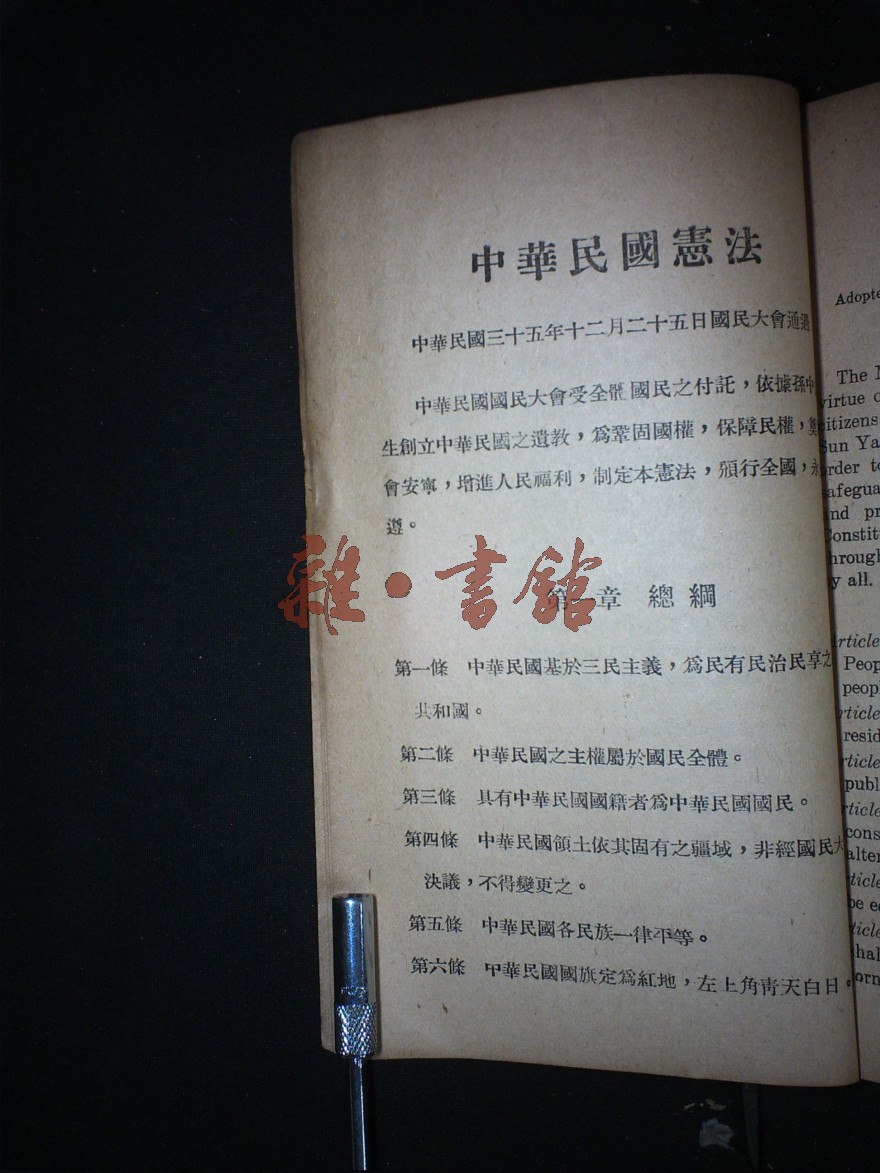 中華民國憲法
中華民國三十五年十二月二十五日國民大會通過
中華民國國民大會受全體國民之付託，依據孫中
生創立中華民國之遺教，爲鞏固國權，保障民權，奠
會安寧，增進人民福利，制定本憲法，頒行全國，永
遵。
第一章 總綱
雜·書館
第一條 中華民國基於三民主義，爲民有民治民享之
共和國。
第二條 中華民國之主權屬於國民全體。
第三條 具有中華民國國籍者爲中華民國國民。
第四條 中華民國領土依其固有之疆域，非經國民大
決議，不得變更之。
第五條 中華民國各民族一律平等。
第六條 中華民國國旗定爲紅地，左上角靑天白日。
Adopte
The
virtue
citizens
Sun Ya
order to
safegua
and pr
Constit
through
by all.
Article
Peop
peopl
Article
resid
Article
publ
Article
cons
alter
Article
be e
Article
shal